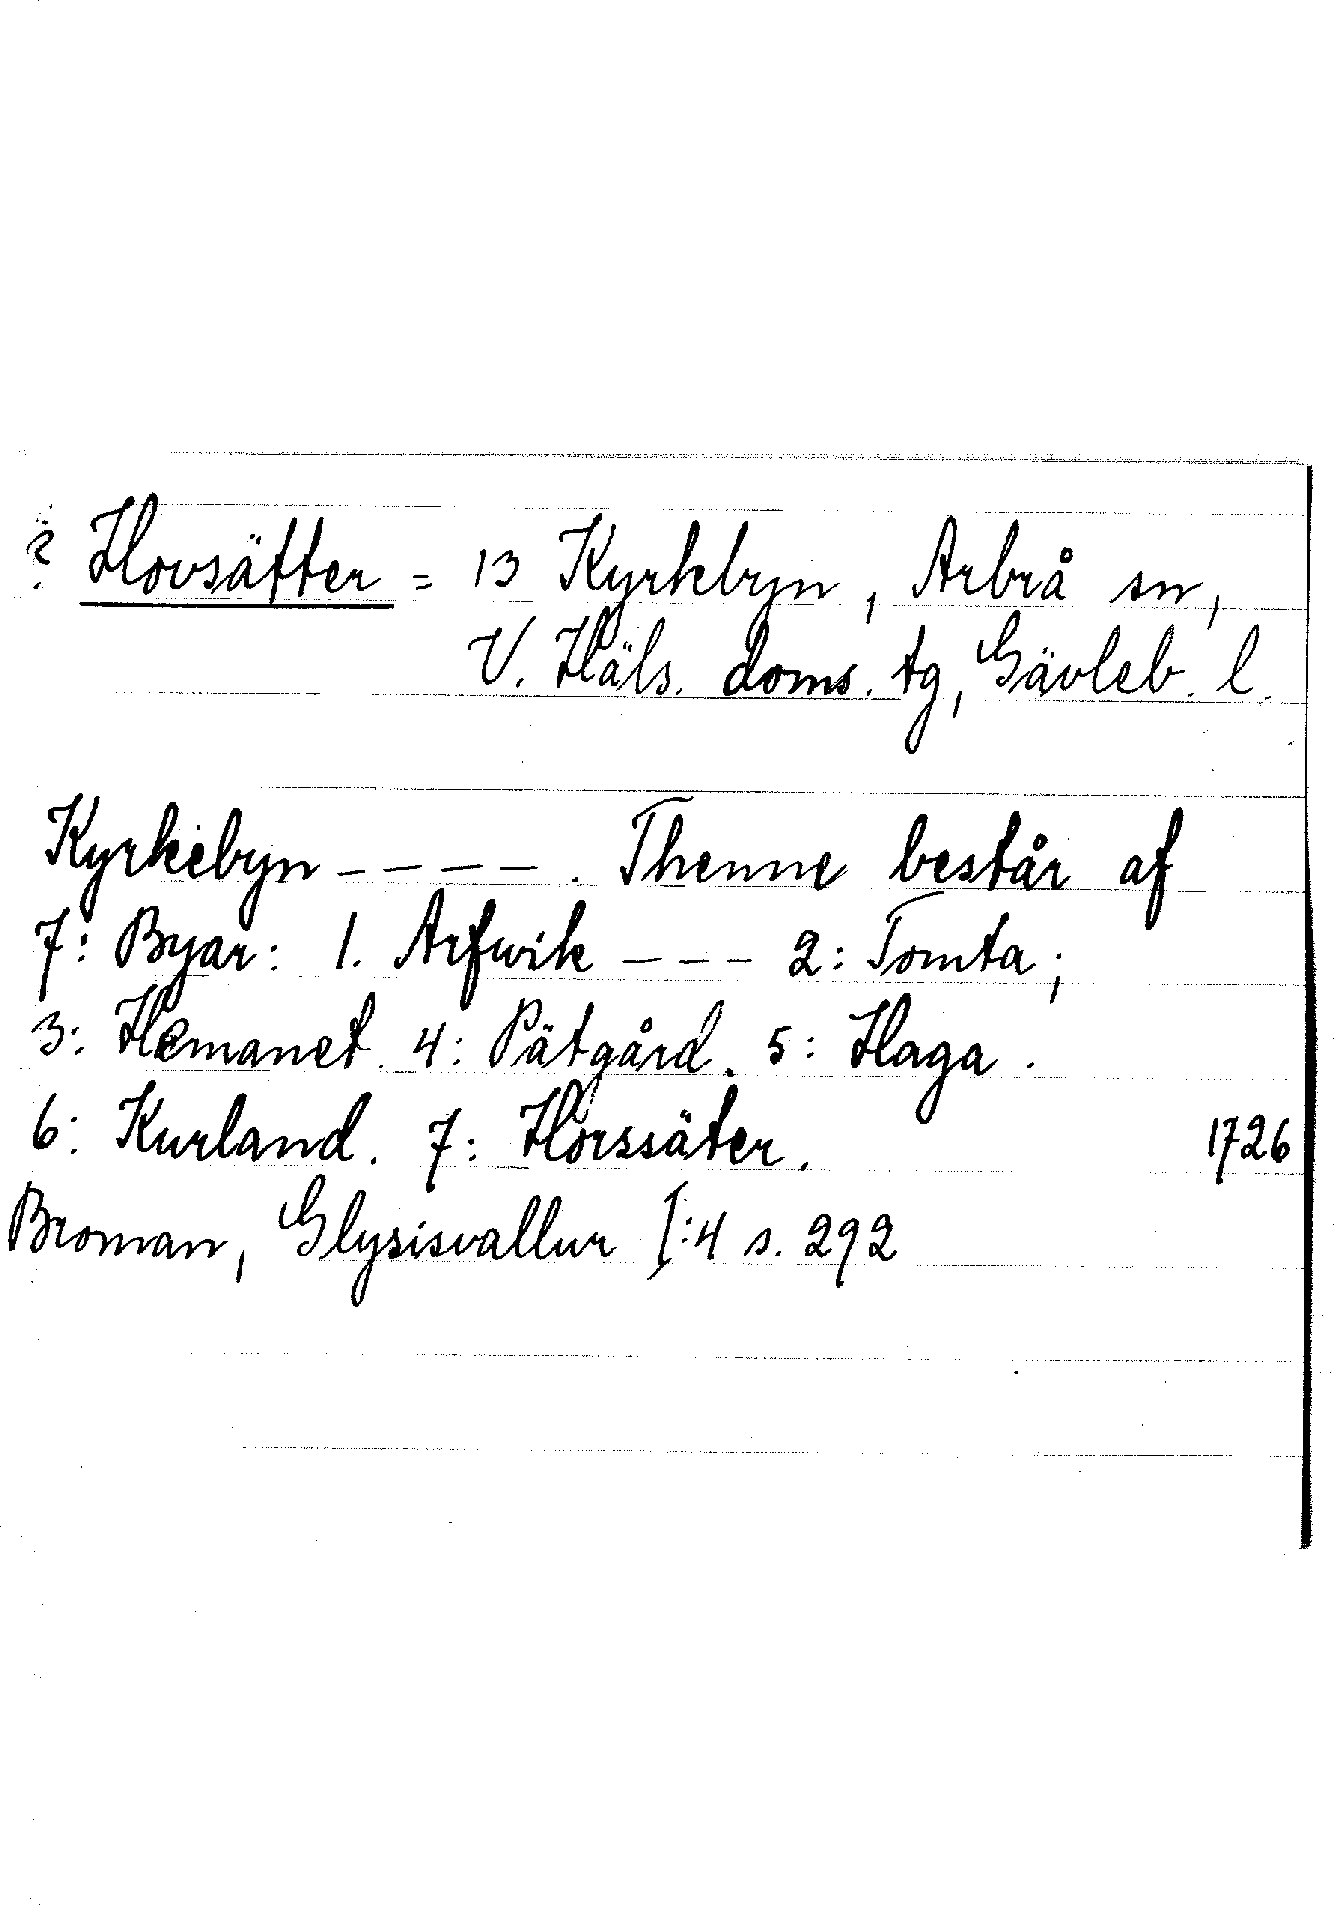 ? Hovsätter = 13 Kyrkbyn, Arbrå sn,
V. Häls. doms. tg, Gävleb. l.
Kyrkebyn - - - - . Thenne består af
7: Byar: 1. Arfwik - - - 2: Tomta;
3: Hemanet. 4: Pätgård. 5: Haga.
6: Kurland. 7: Horssäter. 1726
Broman, Glysisvallur I:4 s. 292